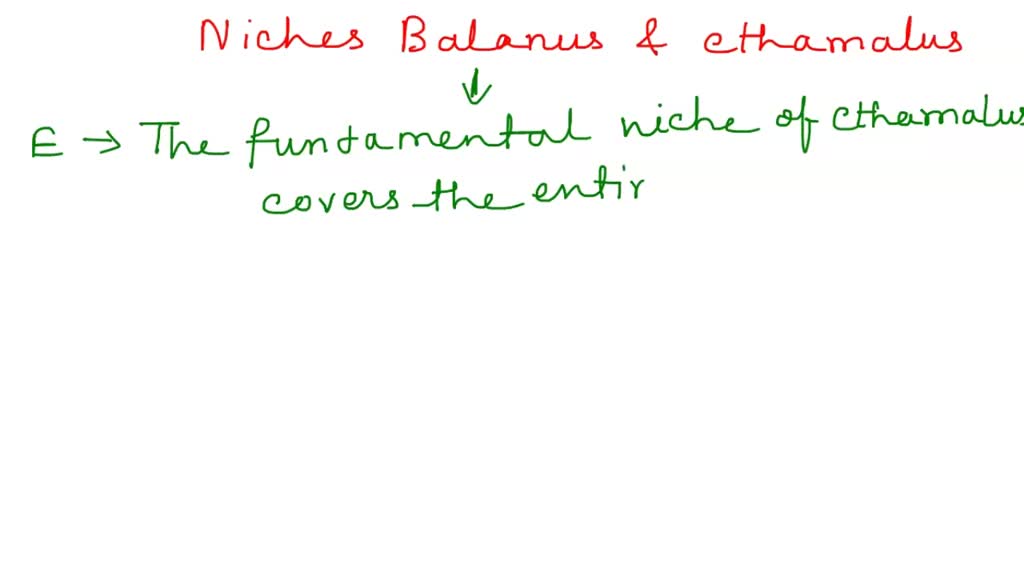 Niches Balanus & cthamalus
↓
E → The fundamental niche of cthamalus
covers the entir